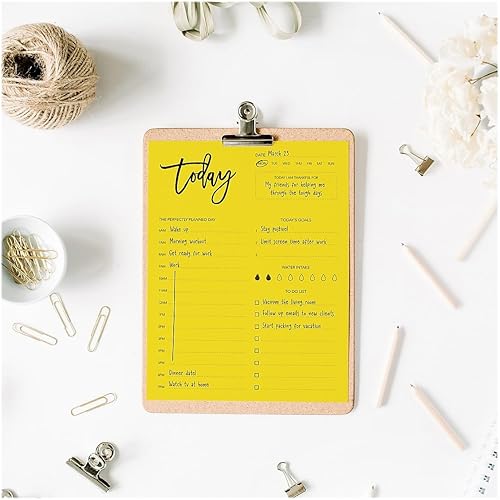 today
DATE March 23
MON TUE WED THU FRI SAT SUN
TODAY I AM THANKFUL FOR
My friends for helping me
through the tough days
THE PERFECTLY PLANNED DAY
5AM Wake up
6AM Morning workout
8AM Get ready for work
9AM Work
10AM
11AM
12PM
1PM
2PM
3PM
4PM
5PM
Dinner date!
Watch tv at home
TODAY'S GOALS
1 Stay positive!
2 Limit screen time after work
3
WATER INTAKE
TO DO LIST
Vacuum the living room
Follow up emails to new clients
Start packing for vacation